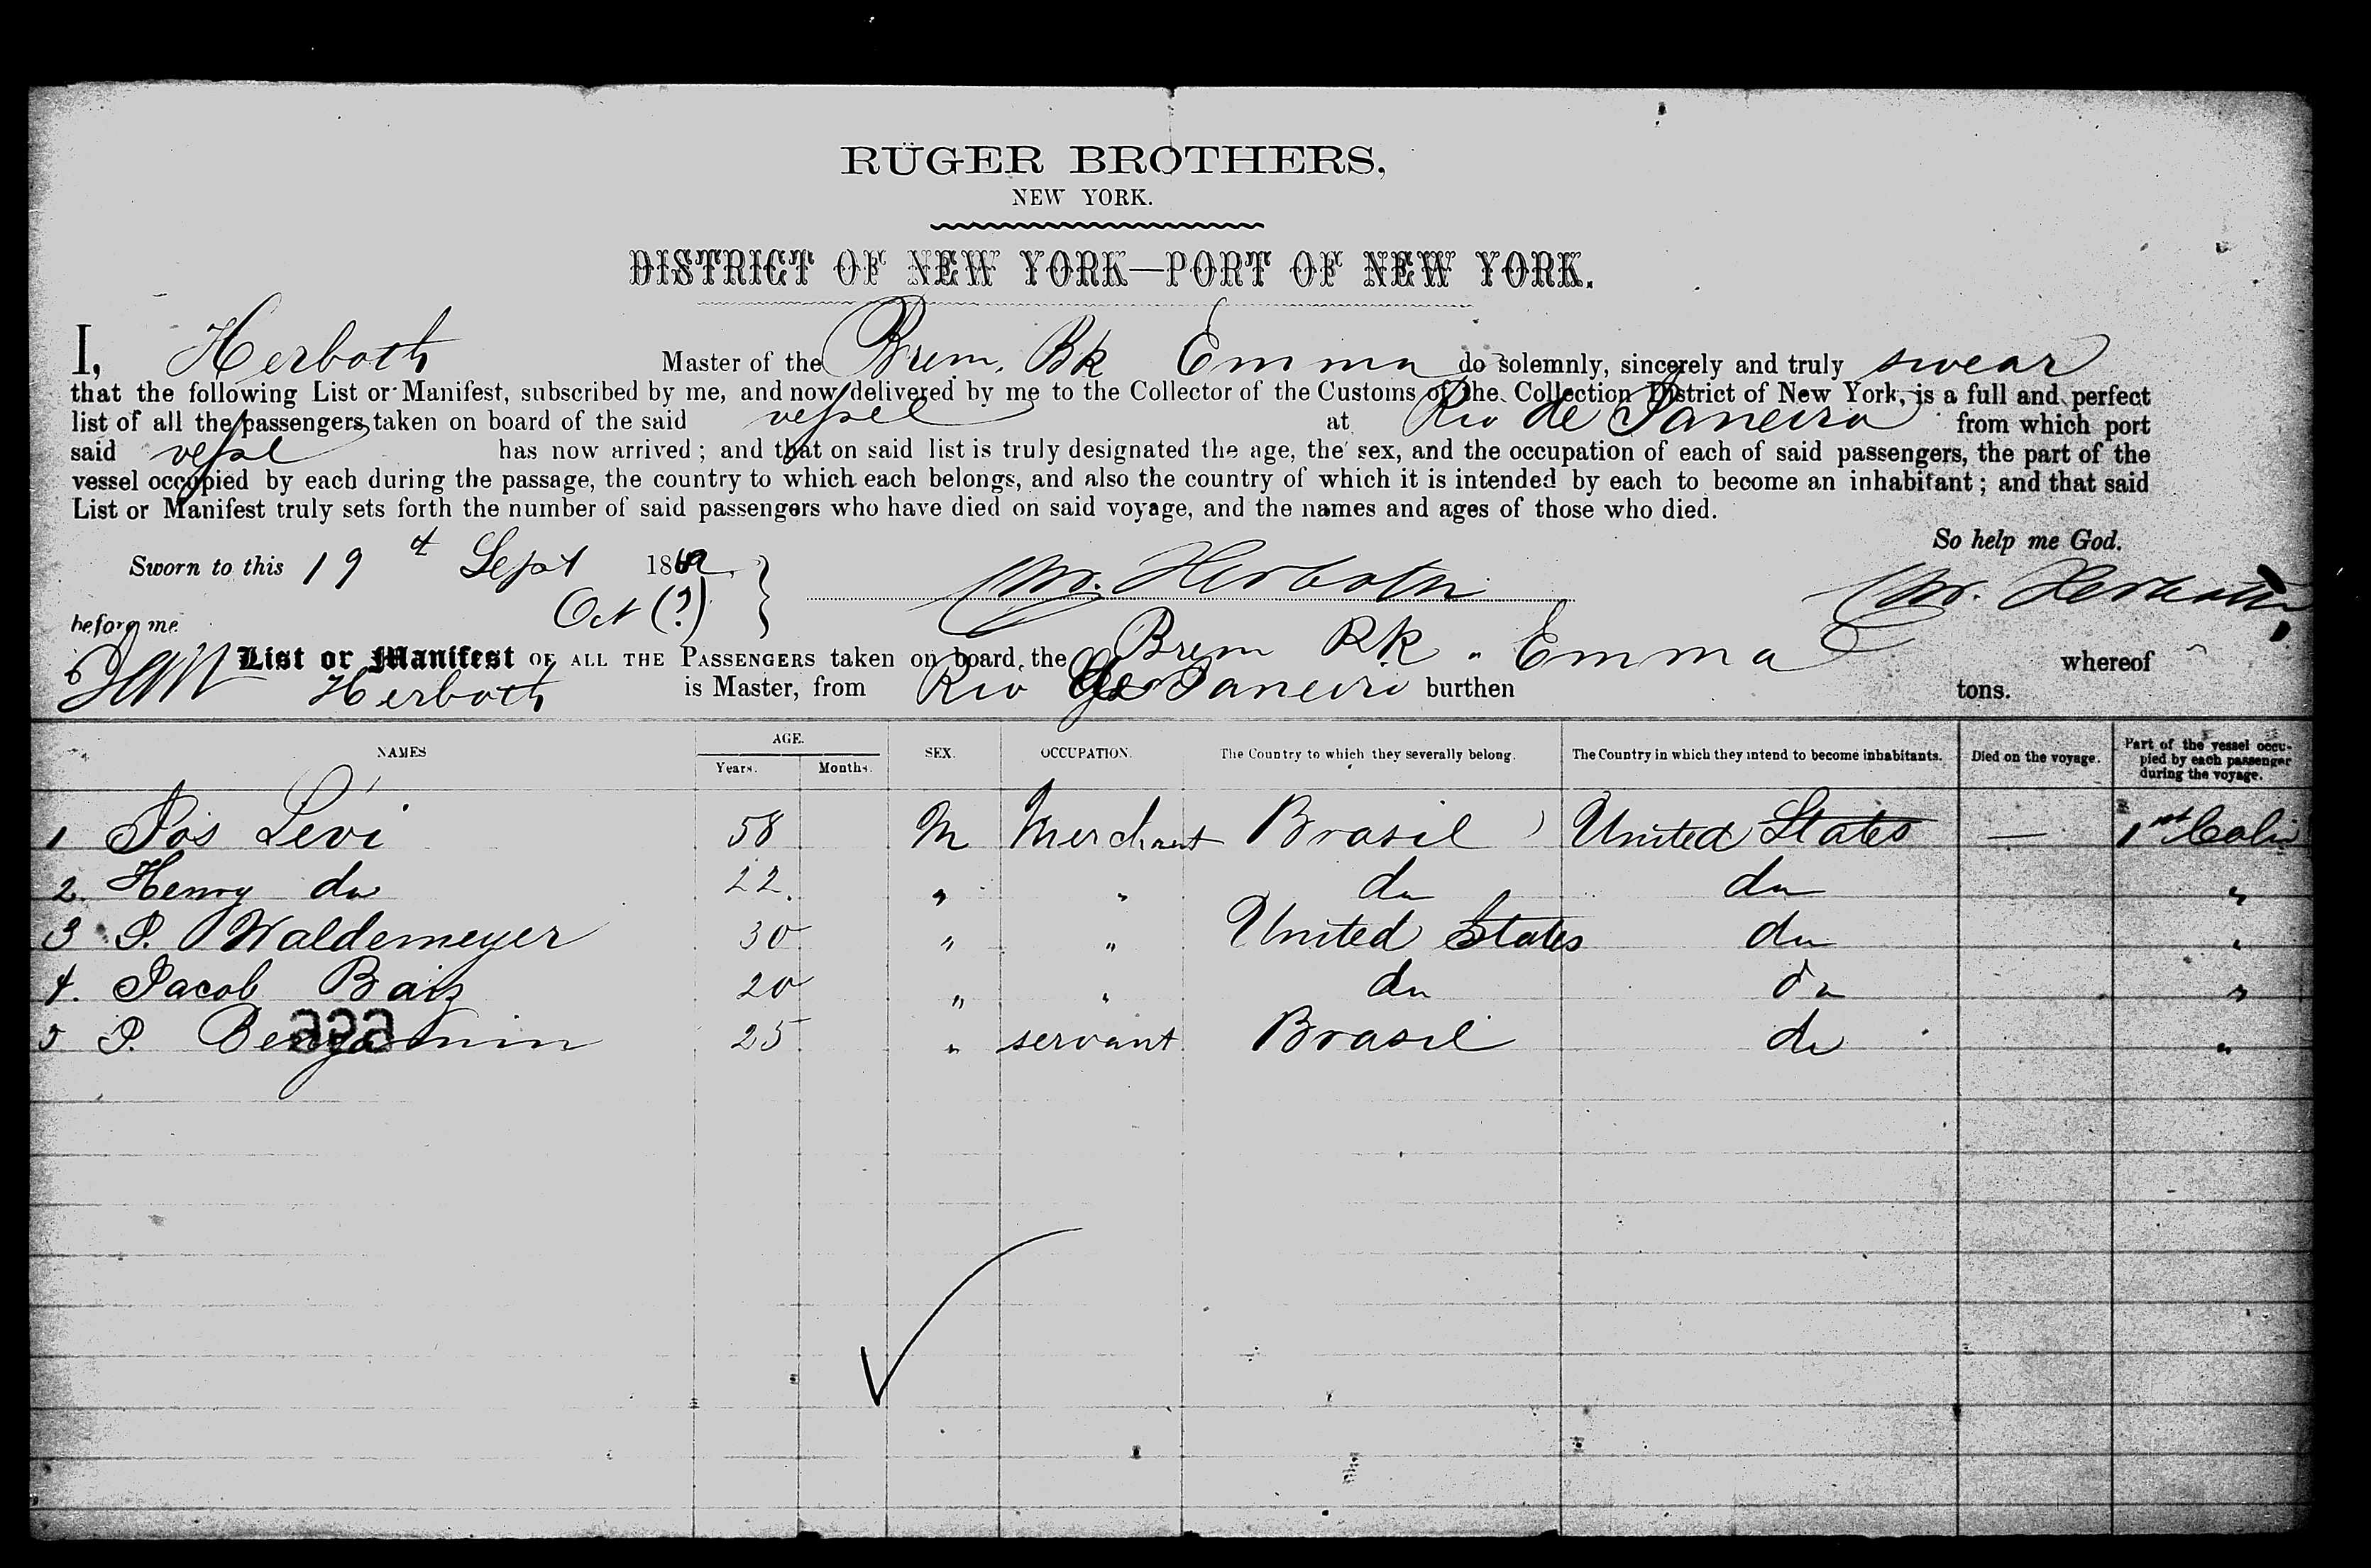 RÜGER BROTHERS,
NEW YORK.
DISTRICT OF NEW YORK—PORT OF NEW YORK.
I, Herboth Master of the Brem. Bk Emma do solemnly, sincerely and truly swear
that the following List or Manifest, subscribed by me, and now delivered by me to the Collector of the Customs of the Collection District of New York, is a full and perfect
list of all the passengers taken on board of the said vessel at Rio de Janeiro from which port
said vessel has now arrived; and that on said list is truly designated the age, the sex, and the occupation of each of said passengers, the part of the
vessel occupied by each during the passage, the country to which each belongs, and also the country of which it is intended by each to become an inhabitant; and that said
List or Manifest truly sets forth the number of said passengers who have died on said voyage, and the names and ages of those who died.
So help me God.
Sworn to this 19 Sept 186
Oct (?) Herboth Herboth
before me
List or Manifest OF ALL THE PASSENGERS taken on board the Brem Bk " Emma whereof
Herboth is Master, from Rio de Janeiro burthen tons.
NAMES AGE. SEX. OCCUPATION. The Country to which they severally belong. The Country in which they intend to become inhabitants. Died on the voyage. Part of the vessel occupied by each passenger during the voyage.
Years. Months.
1 Jos Levi 58 M Merchant Brasil United States — 1st Cabin
2. Henry do 22. " " do do "
3 P. Waldemeyer 30 " " United States do "
4. Jacob Baiz 20 " " do do "
5 P. Benjamin 25 " servant Brasil do "